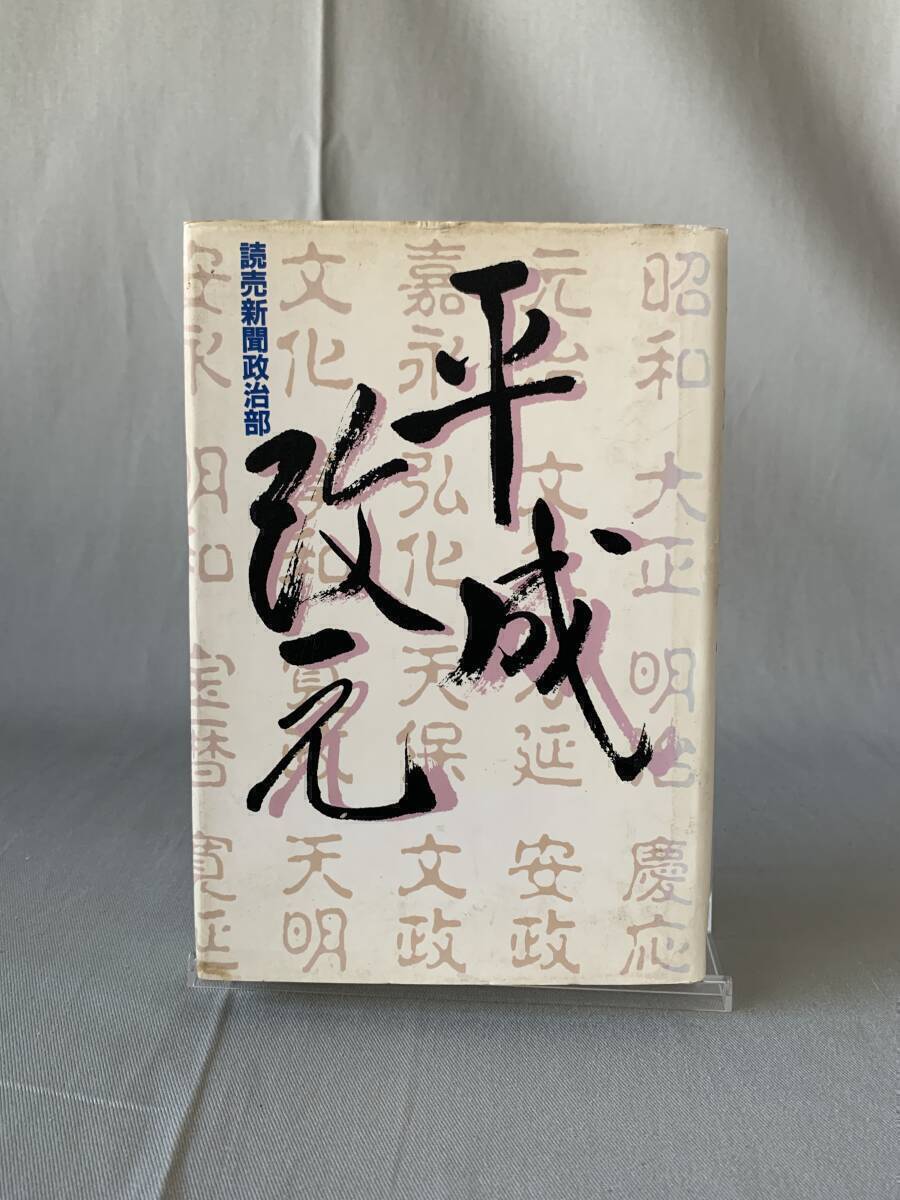 平成
改元
読売新聞政治部
昭和 大正 明治 慶応
元治 文久 万延 安政
嘉永 弘化 天保 文政
文化 享和 寛政 天明
安永 明和 宝暦 寛延